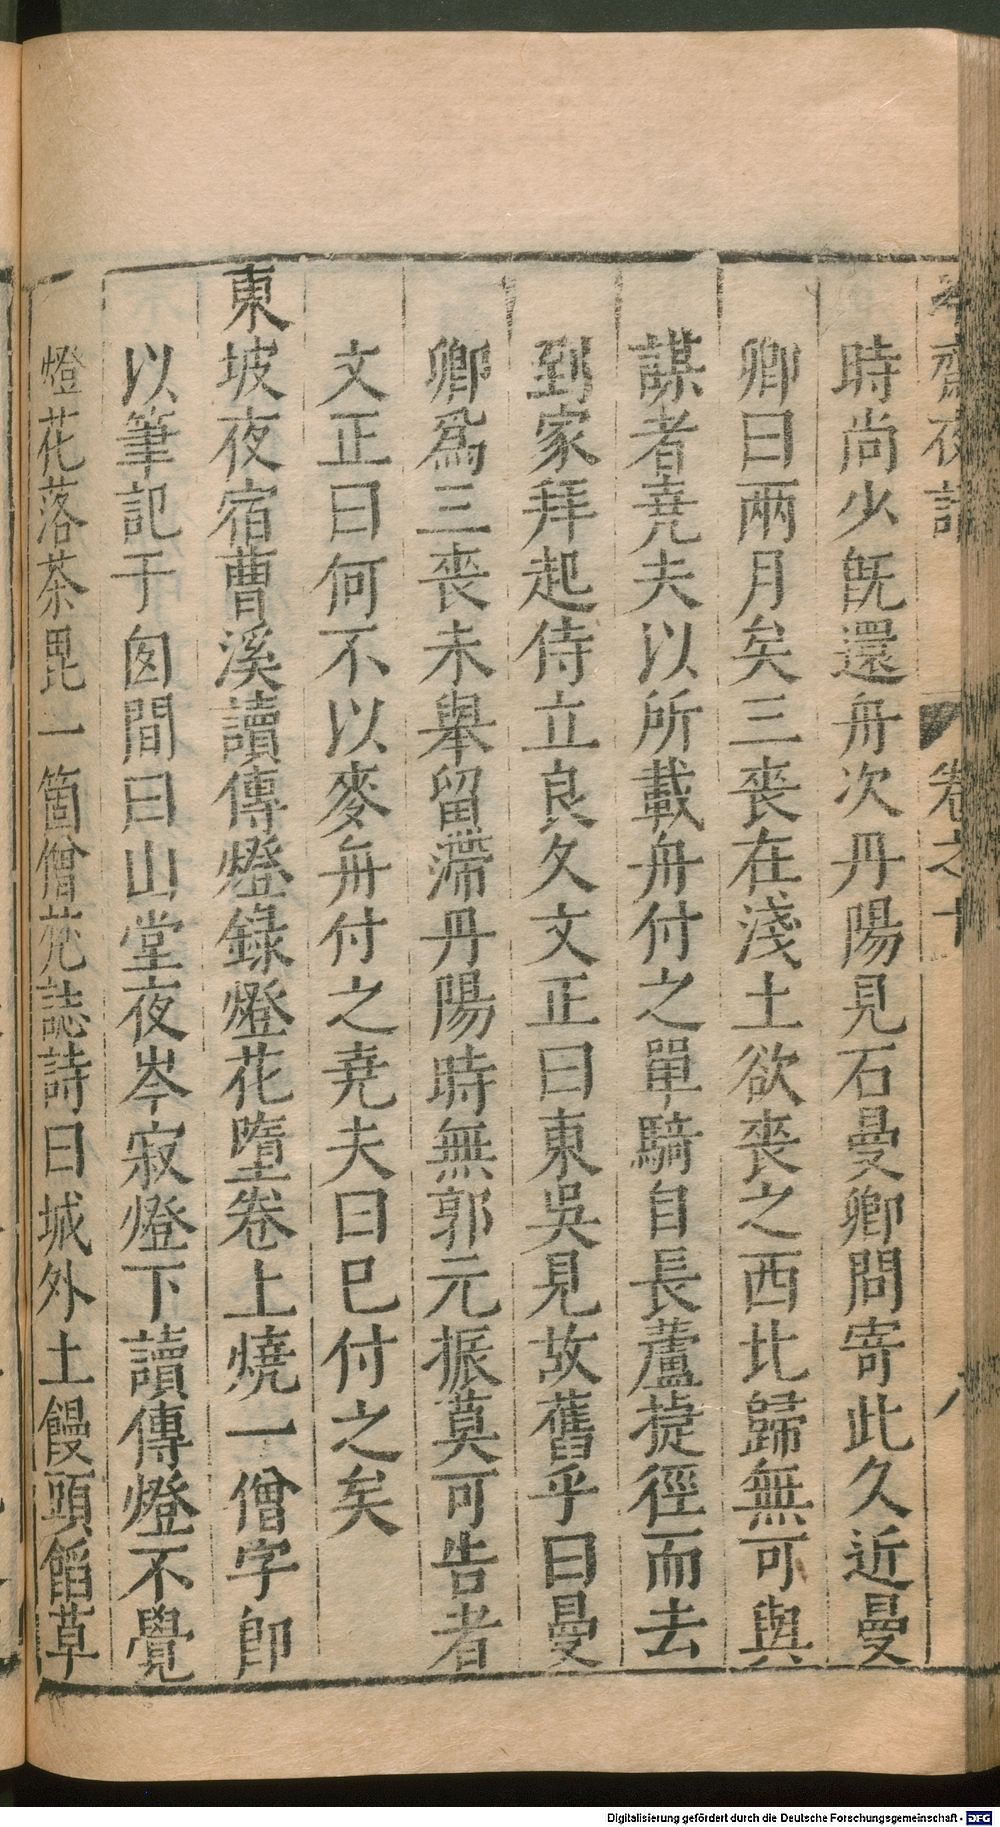 時尚少旣還舟次丹陽見石曼卿問寄此久近曼
卿曰兩月矣三喪在淺土欲喪之西北歸無可與
謀者堯夫以所載舟付之單騎自長蘆捷徑而去
到家拜起侍立良久文正曰東吳見故舊乎曰曼
卿爲三喪未舉留滯丹陽時無郭元振莫可告者
文正曰何不以麥舟付之堯夫曰巳付之矣
東坡夜宿曹溪讀傳燈錄燈花墮卷上燒一僧字卽
以筆記于窗間曰山堂夜岑寂燈下讀傳燈不覺
燈花落茶毘一箇僧梵誌詩曰城外土饅頭餡草
齋夜話
卷之十
八
Digitalisierung gefördert durch die Deutsche Forschungsgemeinschaft - DFG